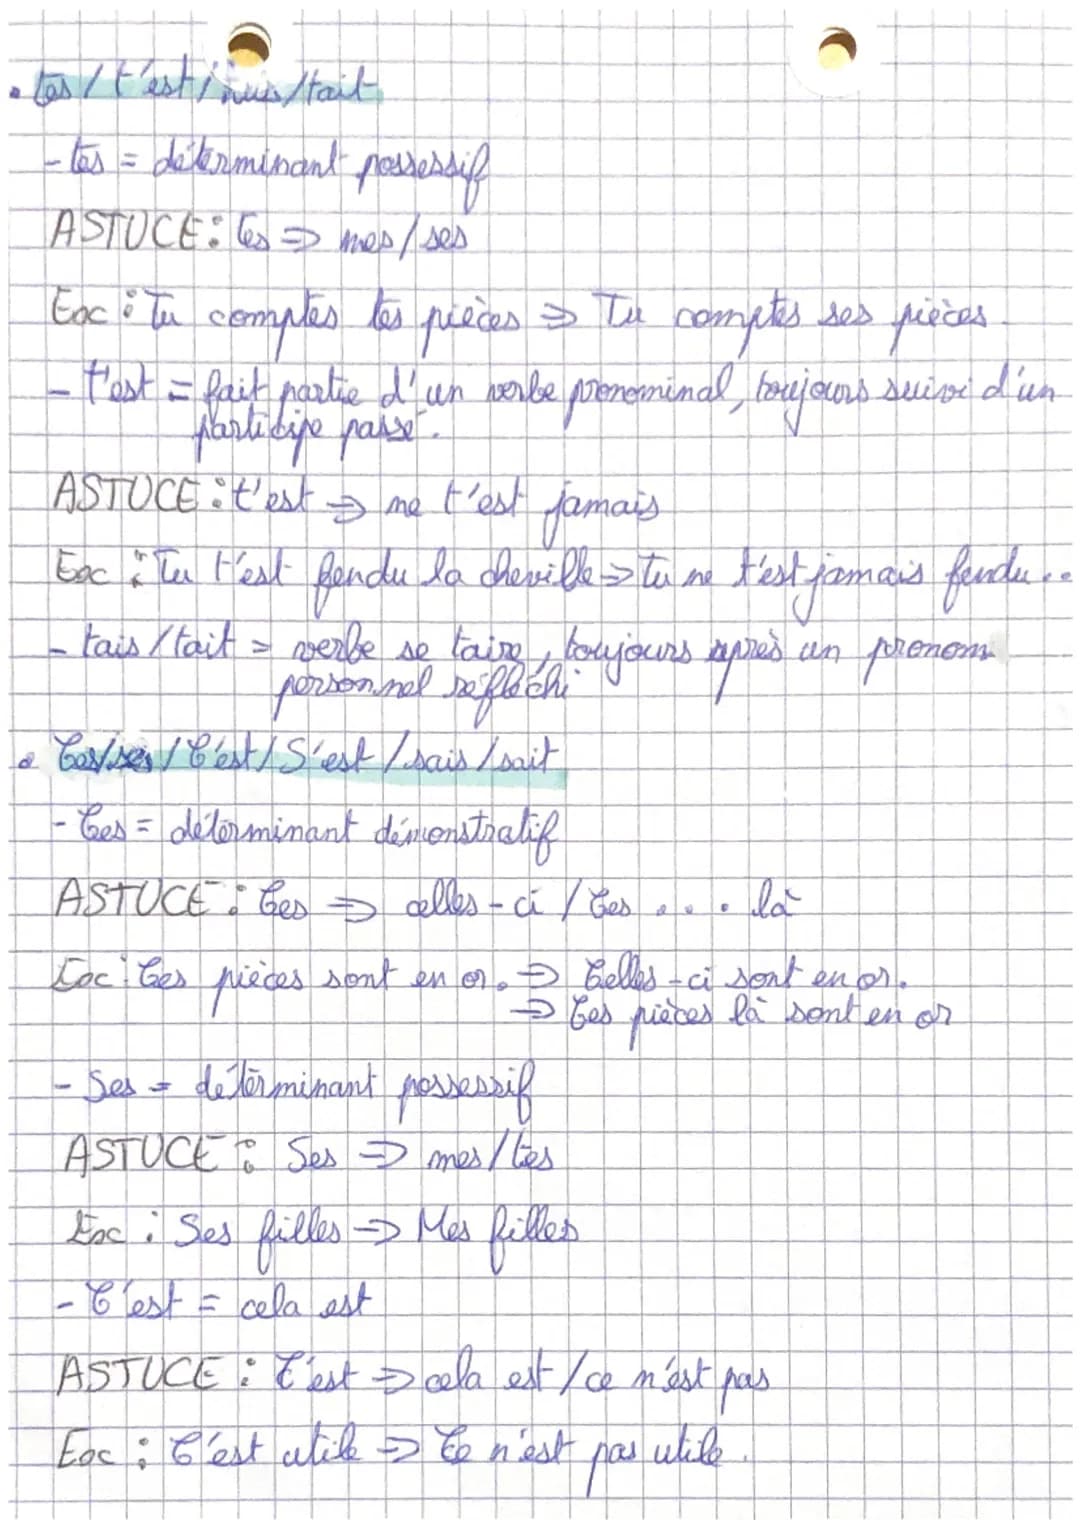 • tes / t'est / tais / tait
- tes = déterminant possessif
ASTUCE : tes ⇒ mes / ses
Ex : Tu comptes tes pièces ⇒ Tu comptes ses pièces.
- t'est = fait partie d'un verbe pronominal, toujours suivi d'un
participe passé.
ASTUCE : t'est ⇒ ne t'est jamais
Ex : Tu t'est fendu la cheville ⇒ tu ne t'est jamais fendu...
- tais / tait = verbe se taire, toujours après un pronom
personnel réfléchi
• Ces / ses / C'est / S'est / sais / sait
- Ces = déterminant démonstratif
ASTUCE : Ces ⇒ celles-ci / Ces .... là
Ex : Ces pièces sont en or. ⇒ Celles-ci sont en or.
⇒ Ces pièces là sont en or
- Ses = déterminant possessif
ASTUCE : Ses ⇒ mes / tes
Ex : Ses filles ⇒ Mes filles
- C'est = cela est
ASTUCE : C'est ⇒ cela est / ce n'est pas
Ex : C'est utile ⇒ Ce n'est pas utile.